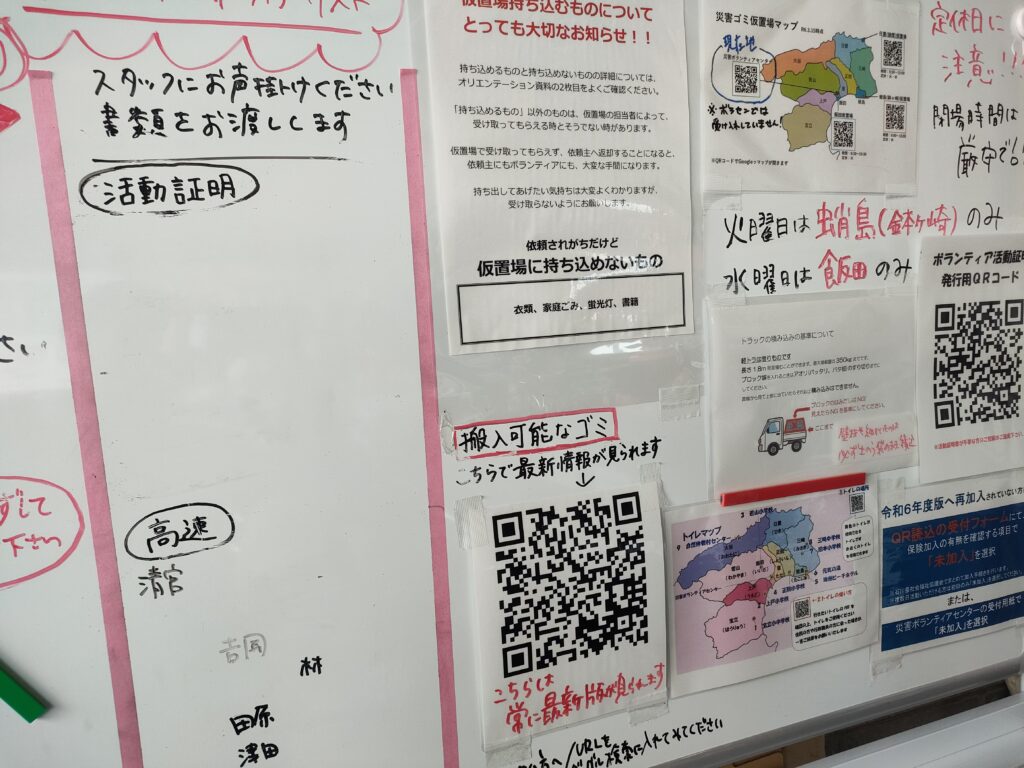 スタッフにお声掛けください
書類をお渡しします
活動証明
高速
清宮
吉岡
林
田原
津田
さい
下さい
仮置場持ち込むものについて
とっても大切なお知らせ！！
持ち込めるものと持ち込めないものの詳細については、
オリエンテーション資料の2枚目をよくご確認ください。
「持ち込めるもの」以外のものは、仮置場の担当者によって、
受け取ってもらえる時とそうでない時があります。
仮置場で受け取ってもらえず、依頼主へ返却することになると、
依頼主にもボランティアにも、大変な手間になります。
持ち出してあげたい気持ちは大変よくわかりますが、
受け取らないようにお願いします。
依頼されがちだけど
仮置場に持ち込めないもの
衣類、家庭ごみ、蛍光灯、書籍
搬入可能なゴミ
こちらで最新情報が見られます
こちらは
常に最新版が見られます
災害ゴミ仮置場マップ
R6.3.15時点
現在地
災害ボランティアセンター
※ボラセンでは
受け入れしていません!
※QRコードでGoogleマップが開きます
定休日に
注意!!!
開場時間は
厳守で
火曜日は蛸島(鉢ヶ崎)のみ
水曜日は飯田のみ
トラックの積み込みの基準について
軽トラは借りものです
ブロックのはみごしはNG!
見えたらNGを基準にしてください。
ここまで
ボランティア活動証明
発行用QRコード
トイレマップ
3 若山小学校
9 自然休養村センター
災害ボランティアセンター
4 正院小学校
2 上戸小学校
令和6年度版へ再加入されていない方
QR読込の受付フォームにて
保険加入の有無を確認する項目で
「未加入」を選択
または、
災害ボランティアセンターの受付用紙で
「未加入」を選択